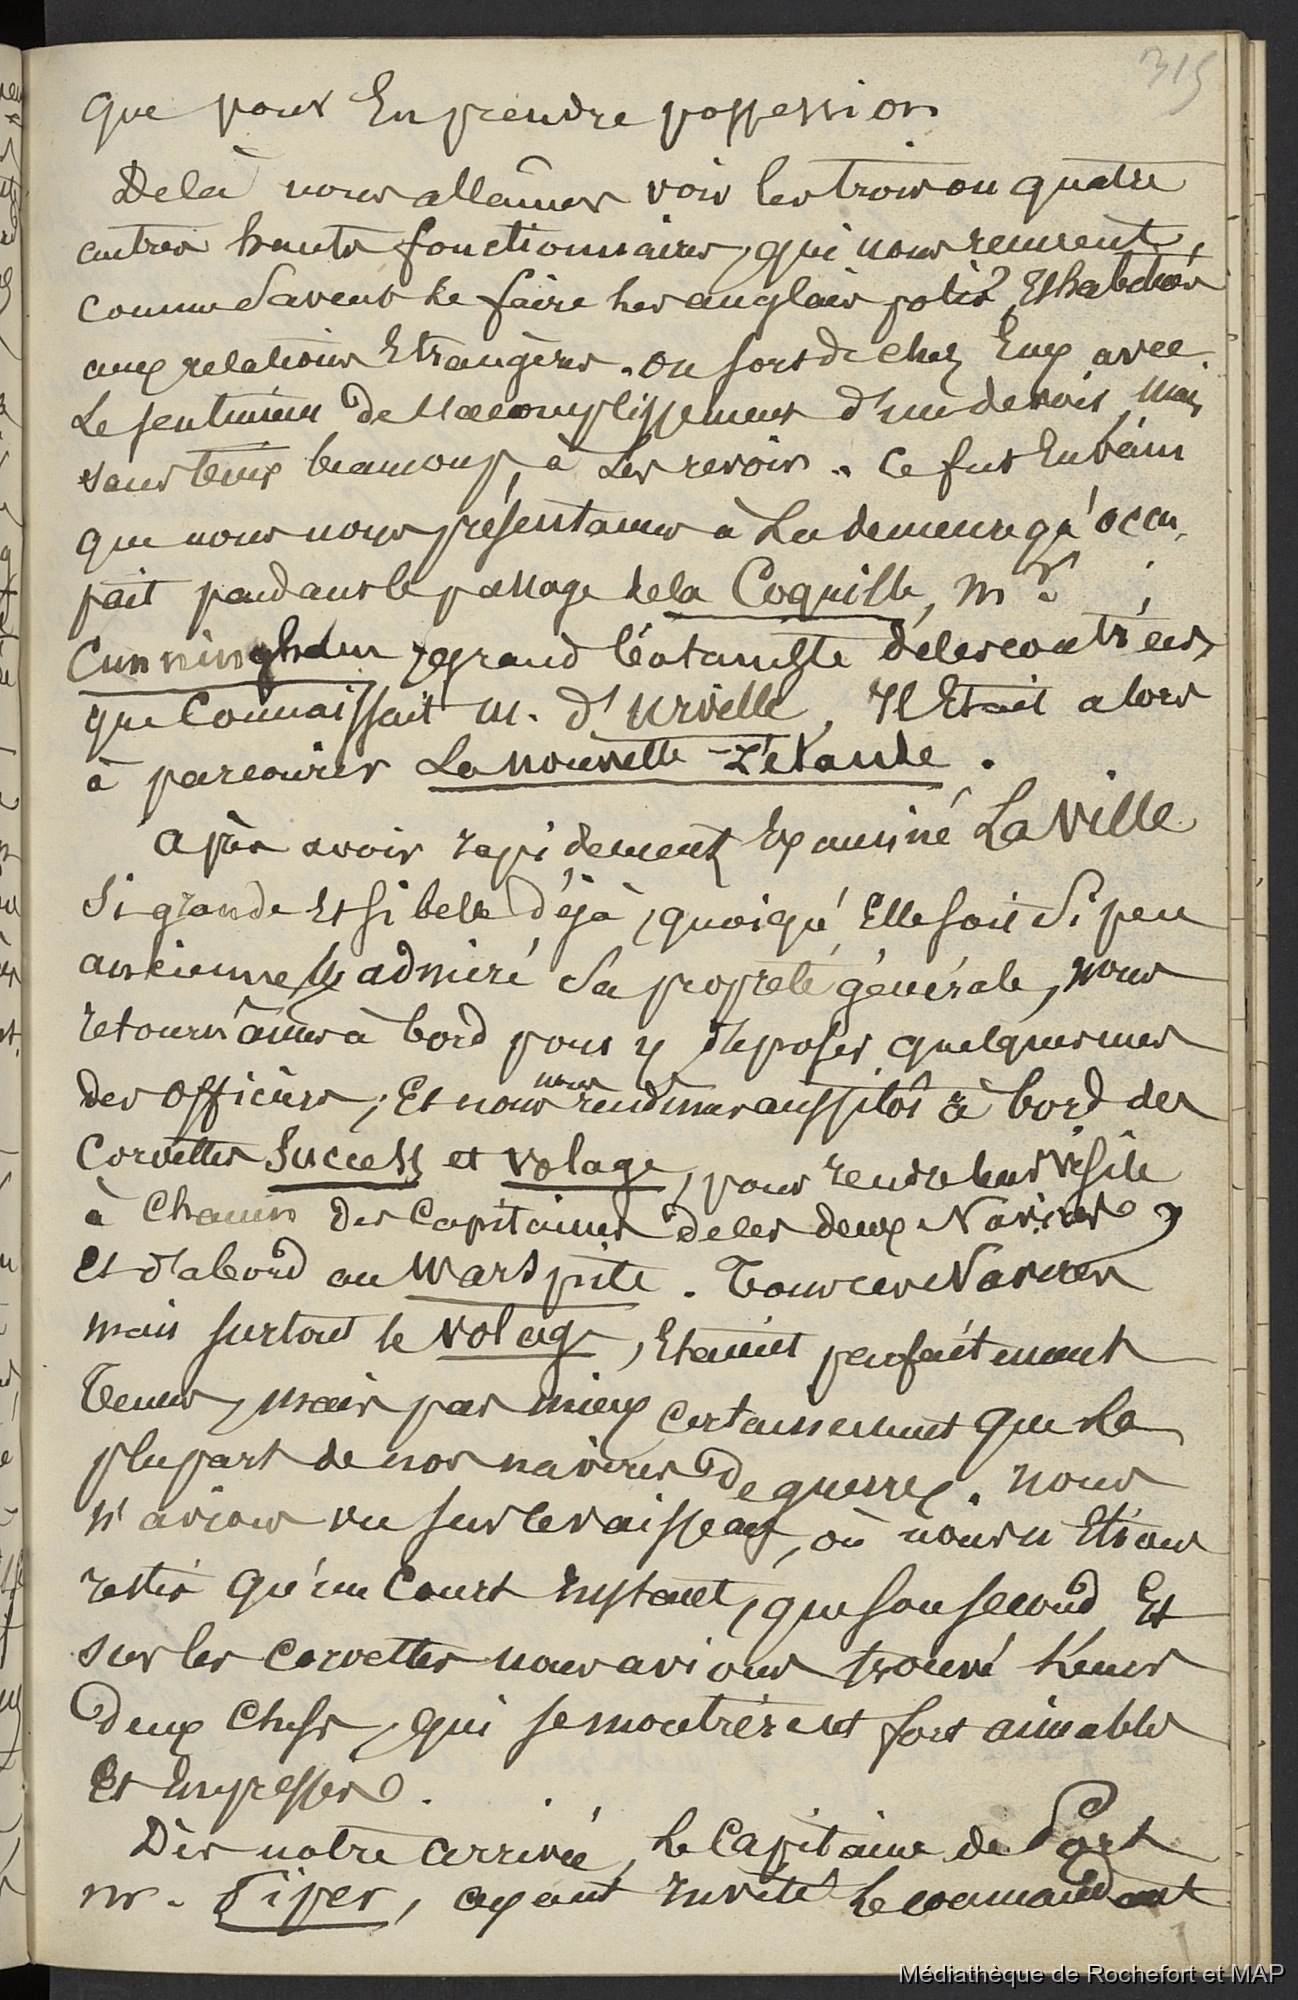 315
que pour En prendre possession
Delà nous allâmes voir les trois ou quatre
autres hauts fonctionnaires, qui nous reçurent,
comme Savent le faire les anglais polis Et habitués
aux relations Etrangères. on sort de chez Eux avec
Le sentiment de l'accomplissement d'un devoir, mais
sans tenir beaucoup, à Les revoir. Ce fut En vain
que nous nous présentames à La demeure qu'occu-
pait pendant le passage de la Coquille, Mr
Cunningham, grand botaniste de les contrées,
que Connaissait M. d'Urville, Il Etait alors
à parcourir La nouvelle Zélande.
Après avoir rapidement Examiné La Ville
Si grande Et si belle déjà, quoiqu'Elle soit Si peu
ancienne, Et admiré Sa propreté générale, nous
retournâmes à bord pour y déposer quelques uns
des officiers; Et nous nous rendimes aussitôt à bord des
Corvettes Success et Volage, pour rendre leur visite
à Chacun des Capitaines de les deux Navires,
Et d'abord au Warspite. Tous ces Navires
mais surtout le Volage, Etaient parfaitement
tenus, mais pas mieux certainement que La
plupart de nos navires de guerre. nous
n'avions vu sur le vaisseau, où nous n'Etions
restés qu'un Court Instant, que son second, Et
sur les corvettes nous avions trouvé leurs
deux Chefs, qui se montrèrent fort aimables
Et Empressés.
Dès notre arrivée, le Capitaine de Port
mr. Piper, ayant Invité Le commandant
Médiathèque de Rochefort et MAP